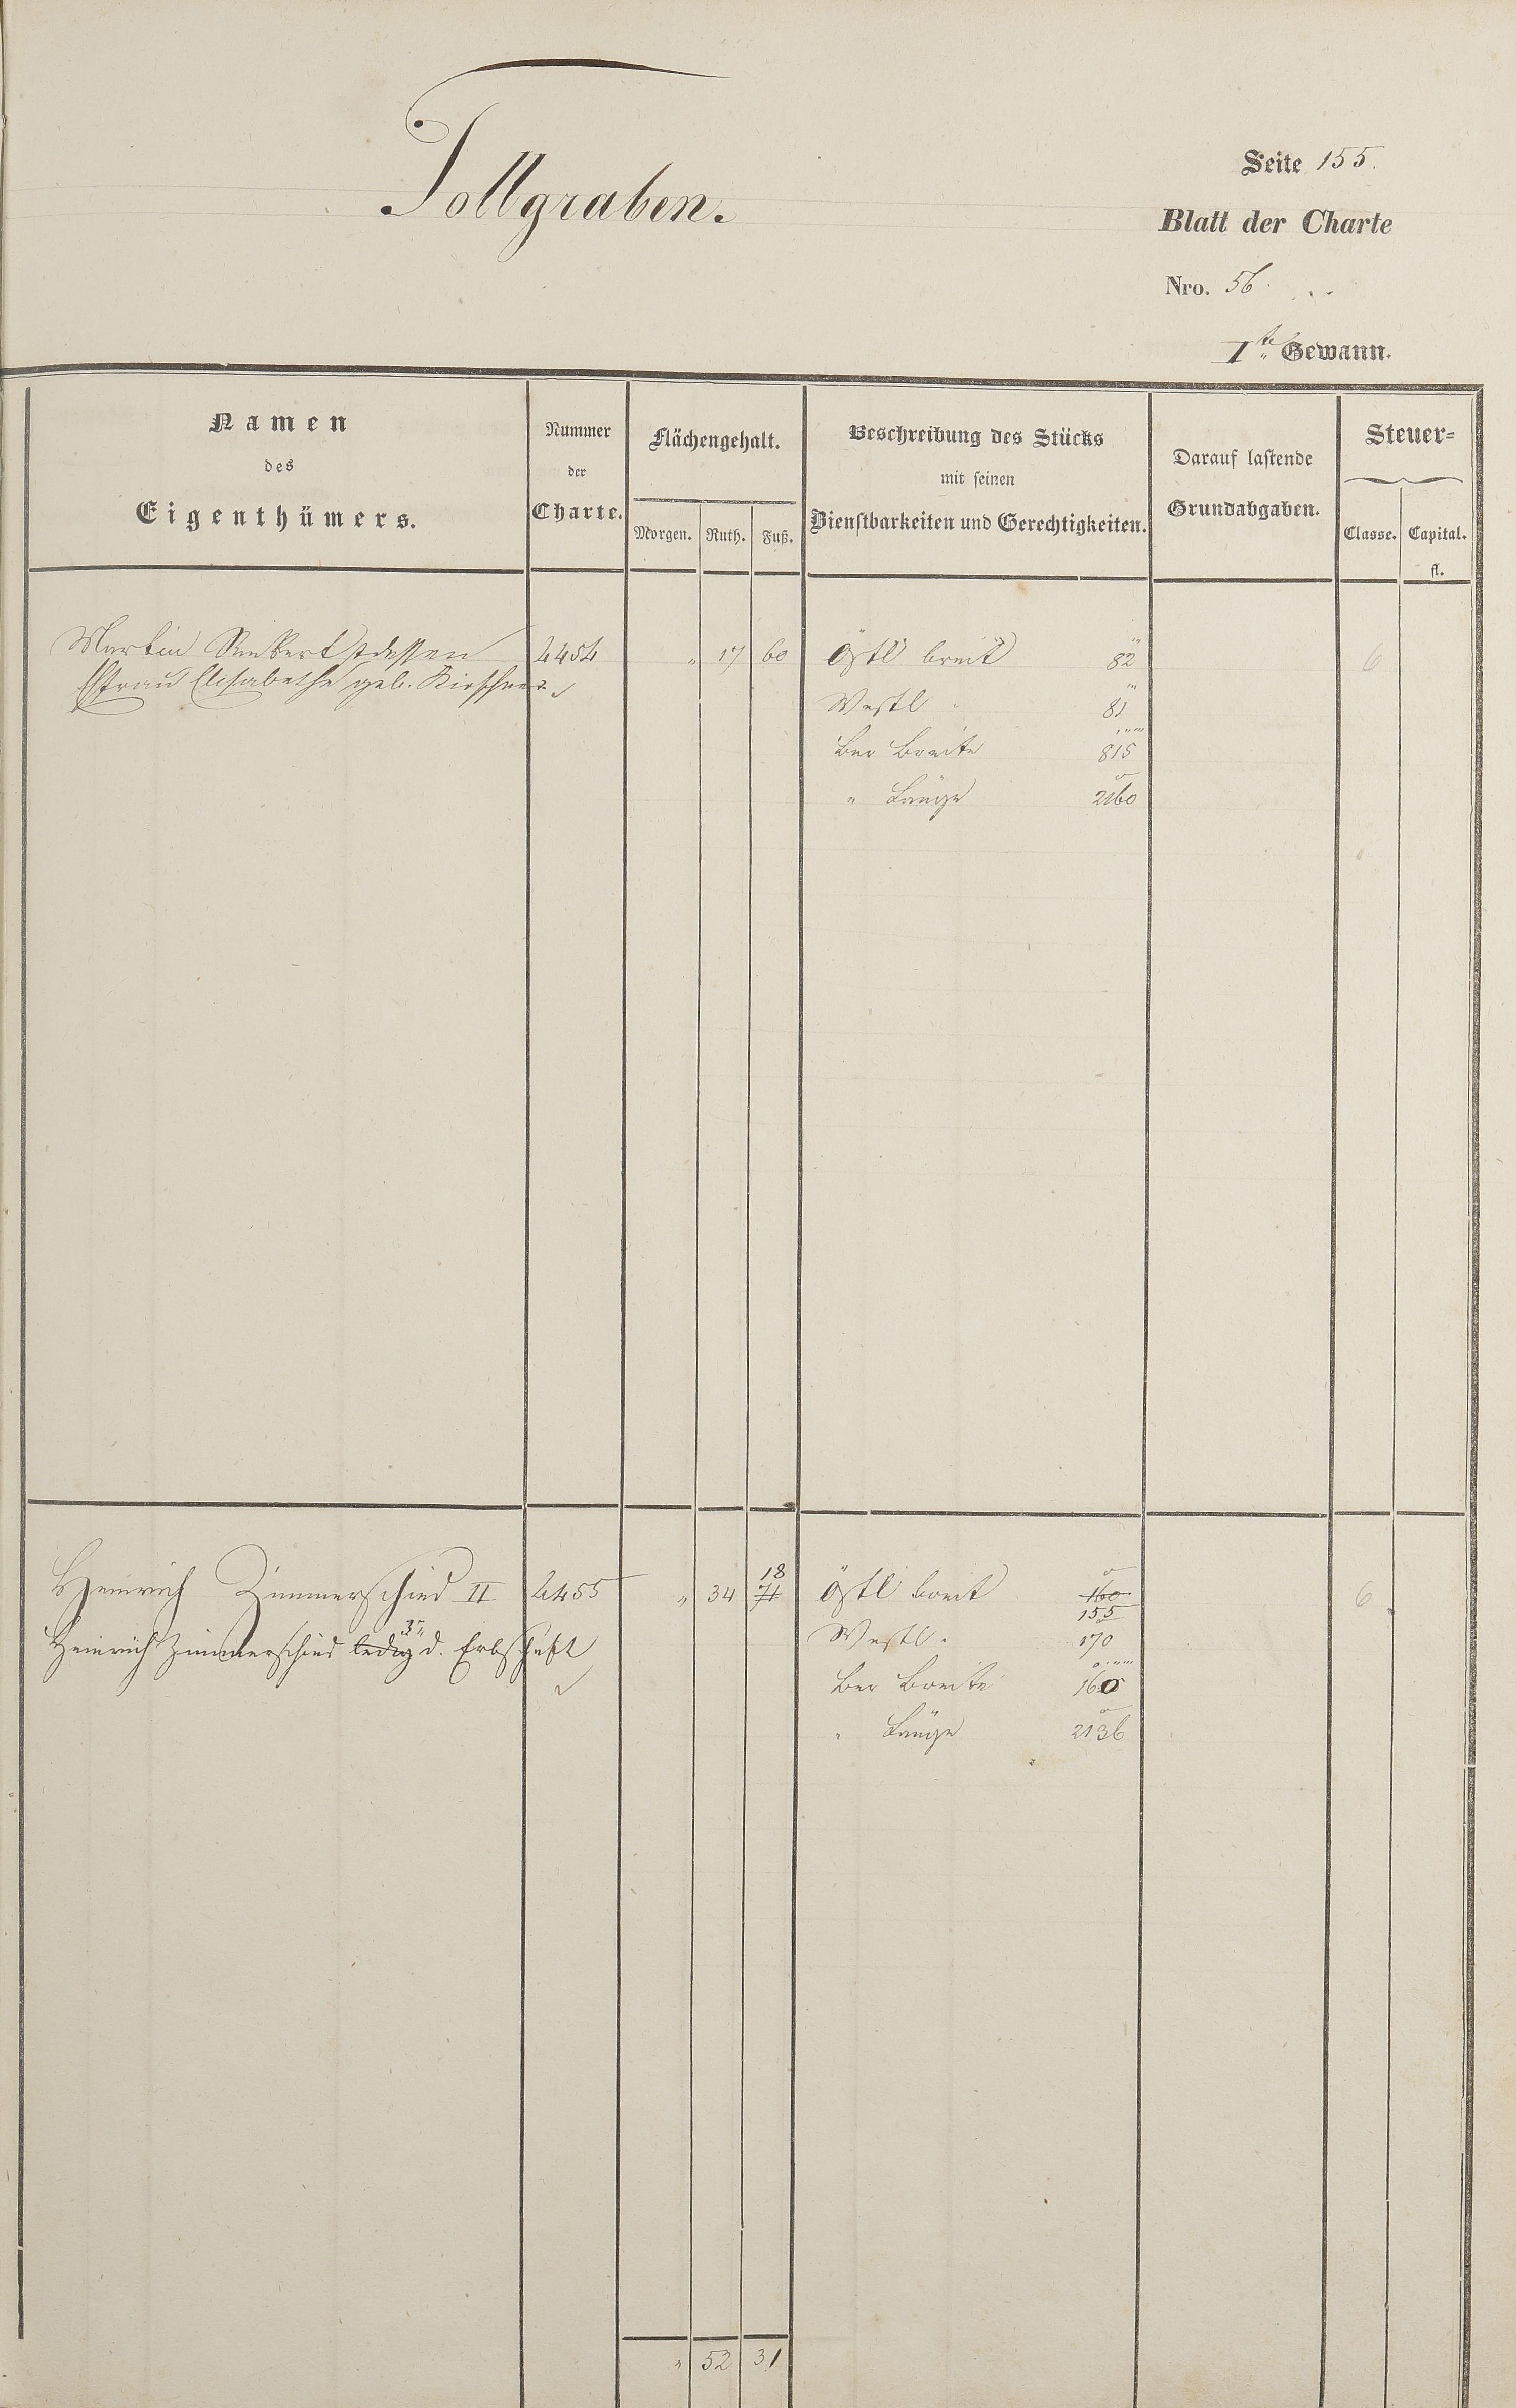 Tollgraben.
Seite 155.
Blatt der Charte
Nro. 56.
I.te Gewann.
Namen
des
Eigenthümers.
Nummer
der
Charte.
Flächengehalt.
Morgen. Ruth. Fuß.
Beschreibung des Stücks
mit seinen
Dienstbarkeiten und Gerechtigkeiten.
Darauf lastende
Grundabgaben.
Steuer=
Classe. Capital.
fl.
Martin dessen 4454 " 17 60 Östl breit 82 6
Ehfrau Elisabetha geb. Kirschner
Westl " 81
Ber Breite 815
" Länge 2160
Heinrich Zimmerschied II 4455 " 34 71 18 Östl breit 160 6
155
Heinrich Zimmerschied ledig 3r d. Erbschaft
Westl " 170
Ber Breite 160
" Länge 2136
" 52 31